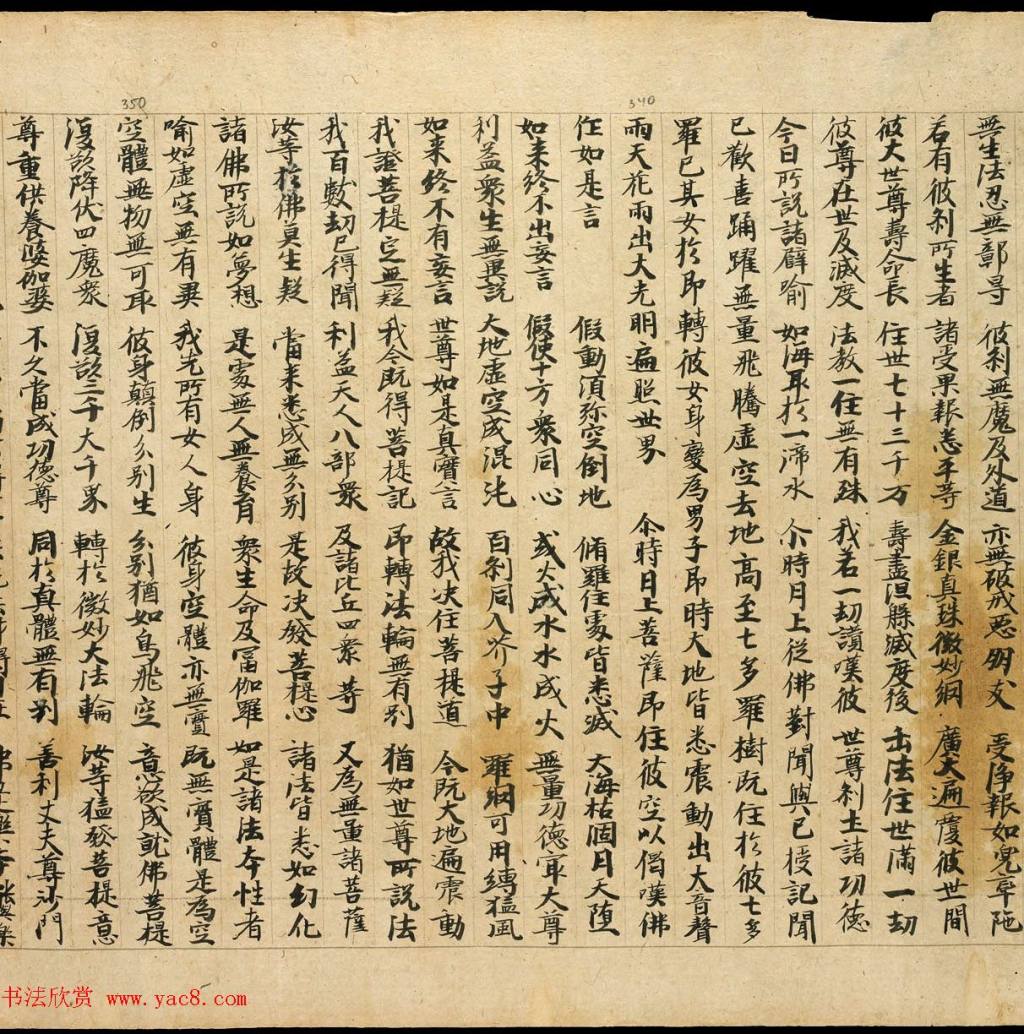 350
340
無生法忍無鄣㝵 彼刹無魔及外道 亦無破戒惡朋友 受淨報如兜率陁
若有彼刹所生者 諸受果報悉平等 金銀真珠微妙網 廣大遍覆彼世間
彼大世尊壽命長 住世七十三千万 壽盡涅槃滅度後 缶法住世滿一劫
彼尊在世及滅度 法教一住無有殊 我若一劫讚嘆彼 世尊刹土諸功德
今日所說諸辟喻 如海取於一渧水 尒時月上從佛對聞與已授記聞
已歡喜踊躍無量飛騰虛空去地高至七多羅樹既住於彼七多
羅已其女於即轉彼女身變為男子即時大地皆悉震動出大音聲
雨天花雨出大光明遍照世界 尒時月上菩薩即住彼空以偈嘆佛
作如是言 假動湏弥空倒地 脩羅住處皆悉滅 大海枯涸月天堕
如来終不出妄言 假使十方衆同心 或火成水水成火 無量功德寂大尊
利益衆生無異說 大地虛空成混沌 百刹同入芥子中 羅網可用縛猛風
如来終不有妄言 世尊如是真實言 故我决住菩提道 今既大地遍震動
我證菩提定無疑 我今既得菩提記 即轉法輪無有別 猶如世尊所說法
我百數劫已得聞 利益天人八部衆 及諸比丘四衆等 又為無量諸菩薩
汝等於佛莫生疑 當来悉成無分別 是故决發菩提心 諸法皆悉如幻化
諸佛所說如夢想 是處無人無養育 衆生命及冨伽羅 如是諸法本性者
喻如虛空無有異 我先所有女人身 彼身空體亦無實 既無實體是為空
空體無物無可取 彼身顛倒分別生 分別猶如鳥飛空 意欲成就佛菩提
復欲降伏四魔衆 復欲三千大千界 轉於微妙大法輪 汝等猛發菩提意
尊重供養婆伽婆 不久當成功德尊 同於真體無有別 善利丈夫尊沙門
书法欣赏 www.yac8.com